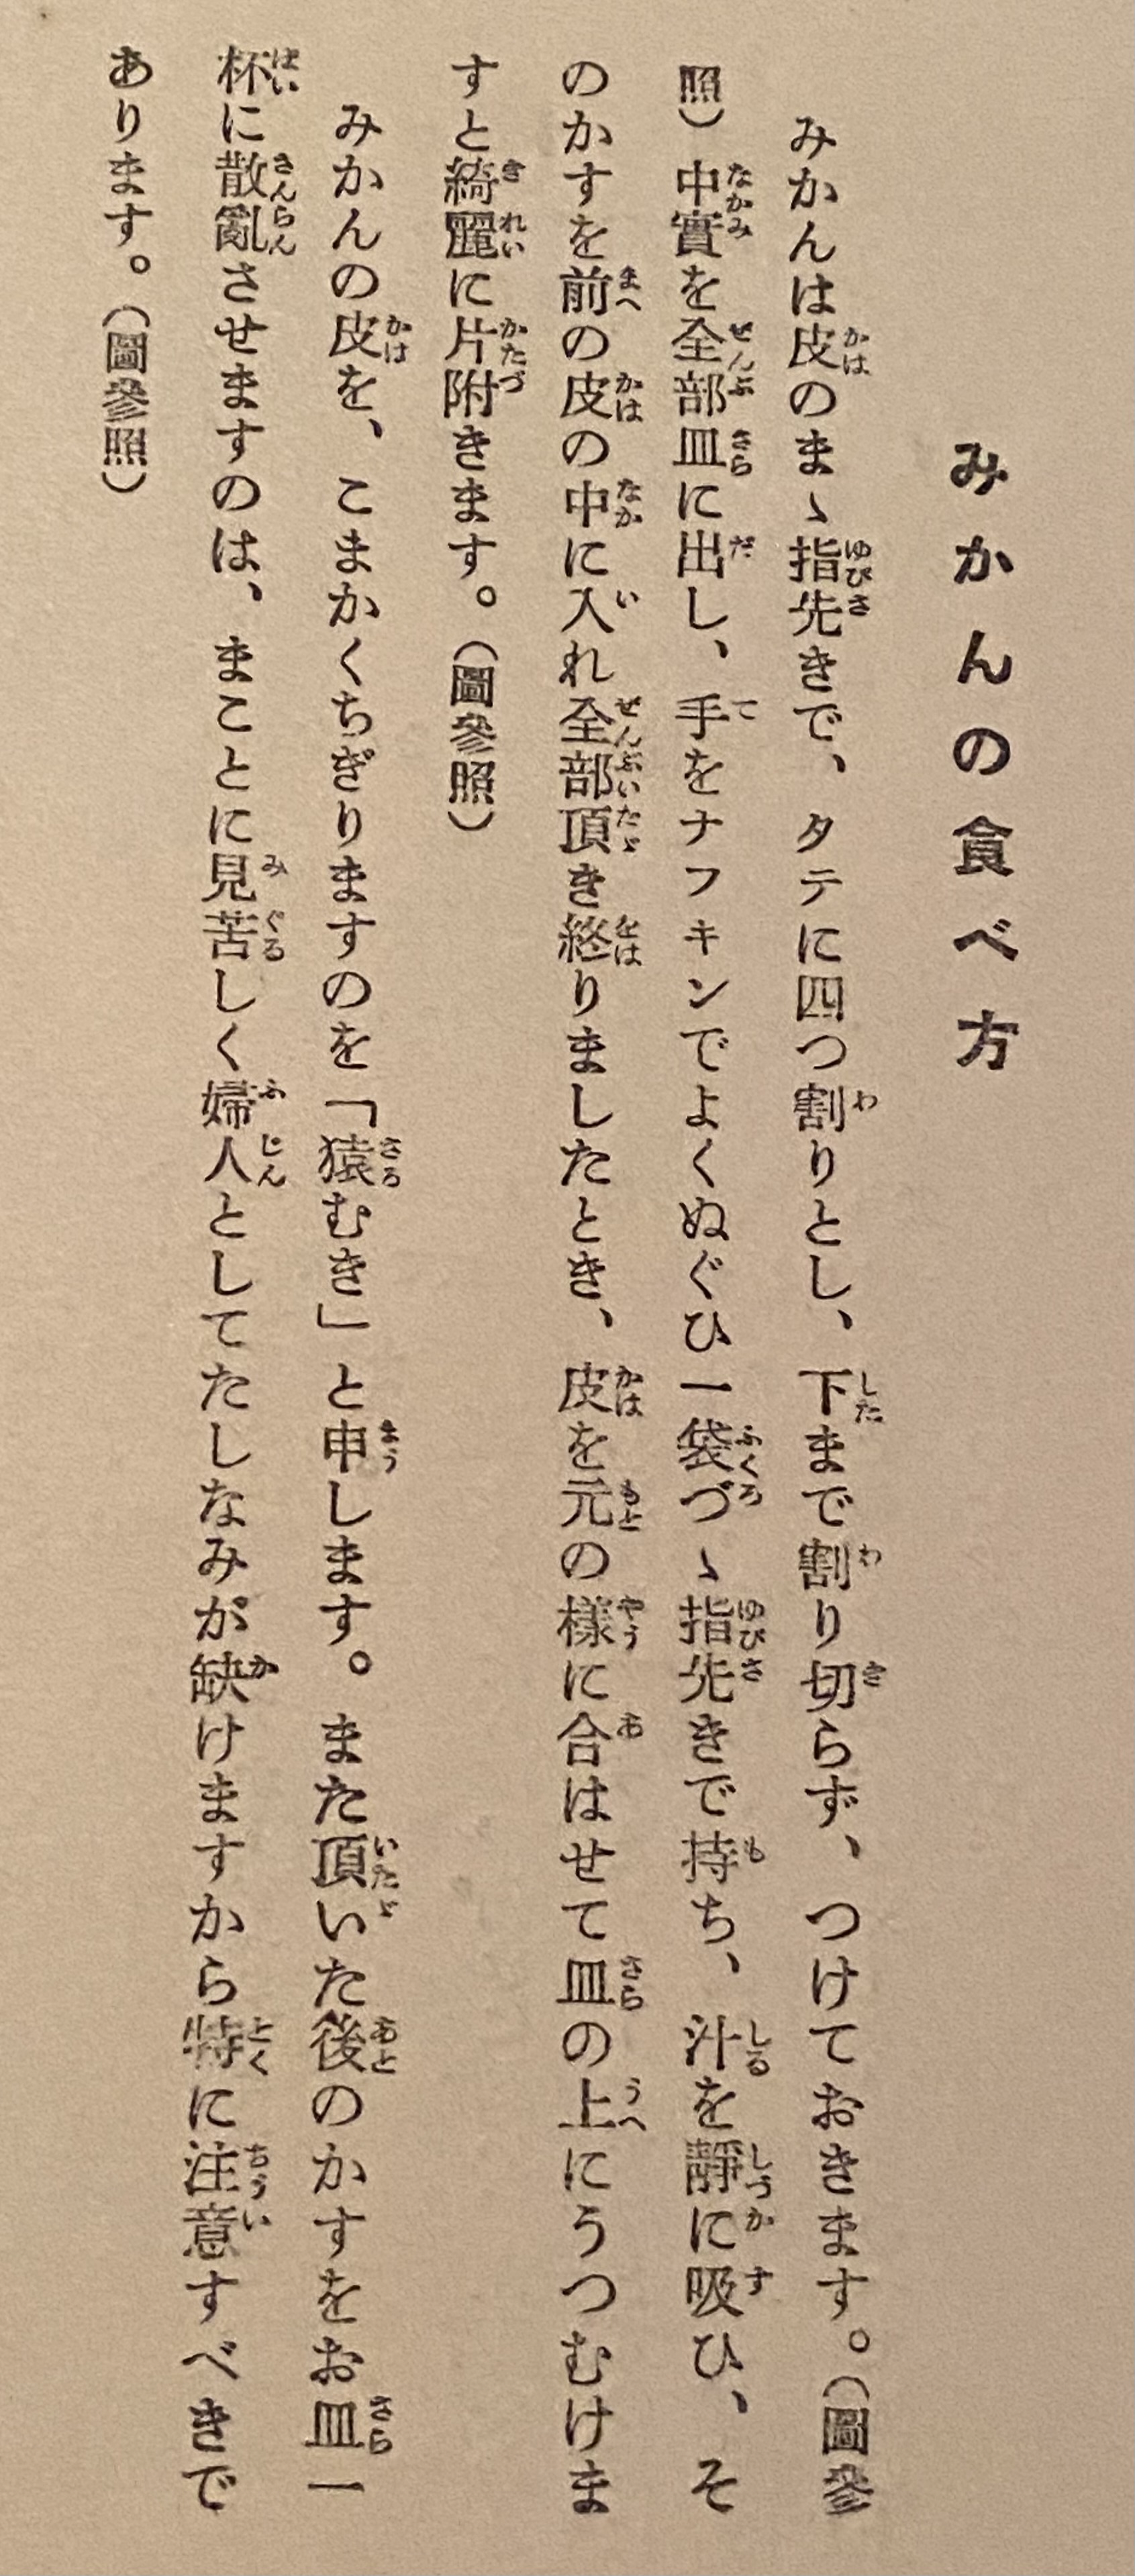 みかんの食べ方
みかんは皮のまゝ指先きで、タテに四つ割りとし、下まで割り切らず、つけておきます。（圖參
照）中實を全部皿に出し、手をナフキンでよくぬぐひ一袋づゝ指先きで持ち、汁を靜に吸ひ、そ
のかすを前の皮の中に入れ全部頂き終りましたとき、皮を元の樣に合はせて皿の上にうつむけま
すと綺麗に片附きます。（圖參照）
みかんの皮を、こまかくちぎりますのを「猿むき」と申します。また頂いた後のかすをお皿一
杯に散亂させますのは、まことに見苦しく婦人としてたしなみが缺けますから特に注意すべきで
あります。（圖參照）